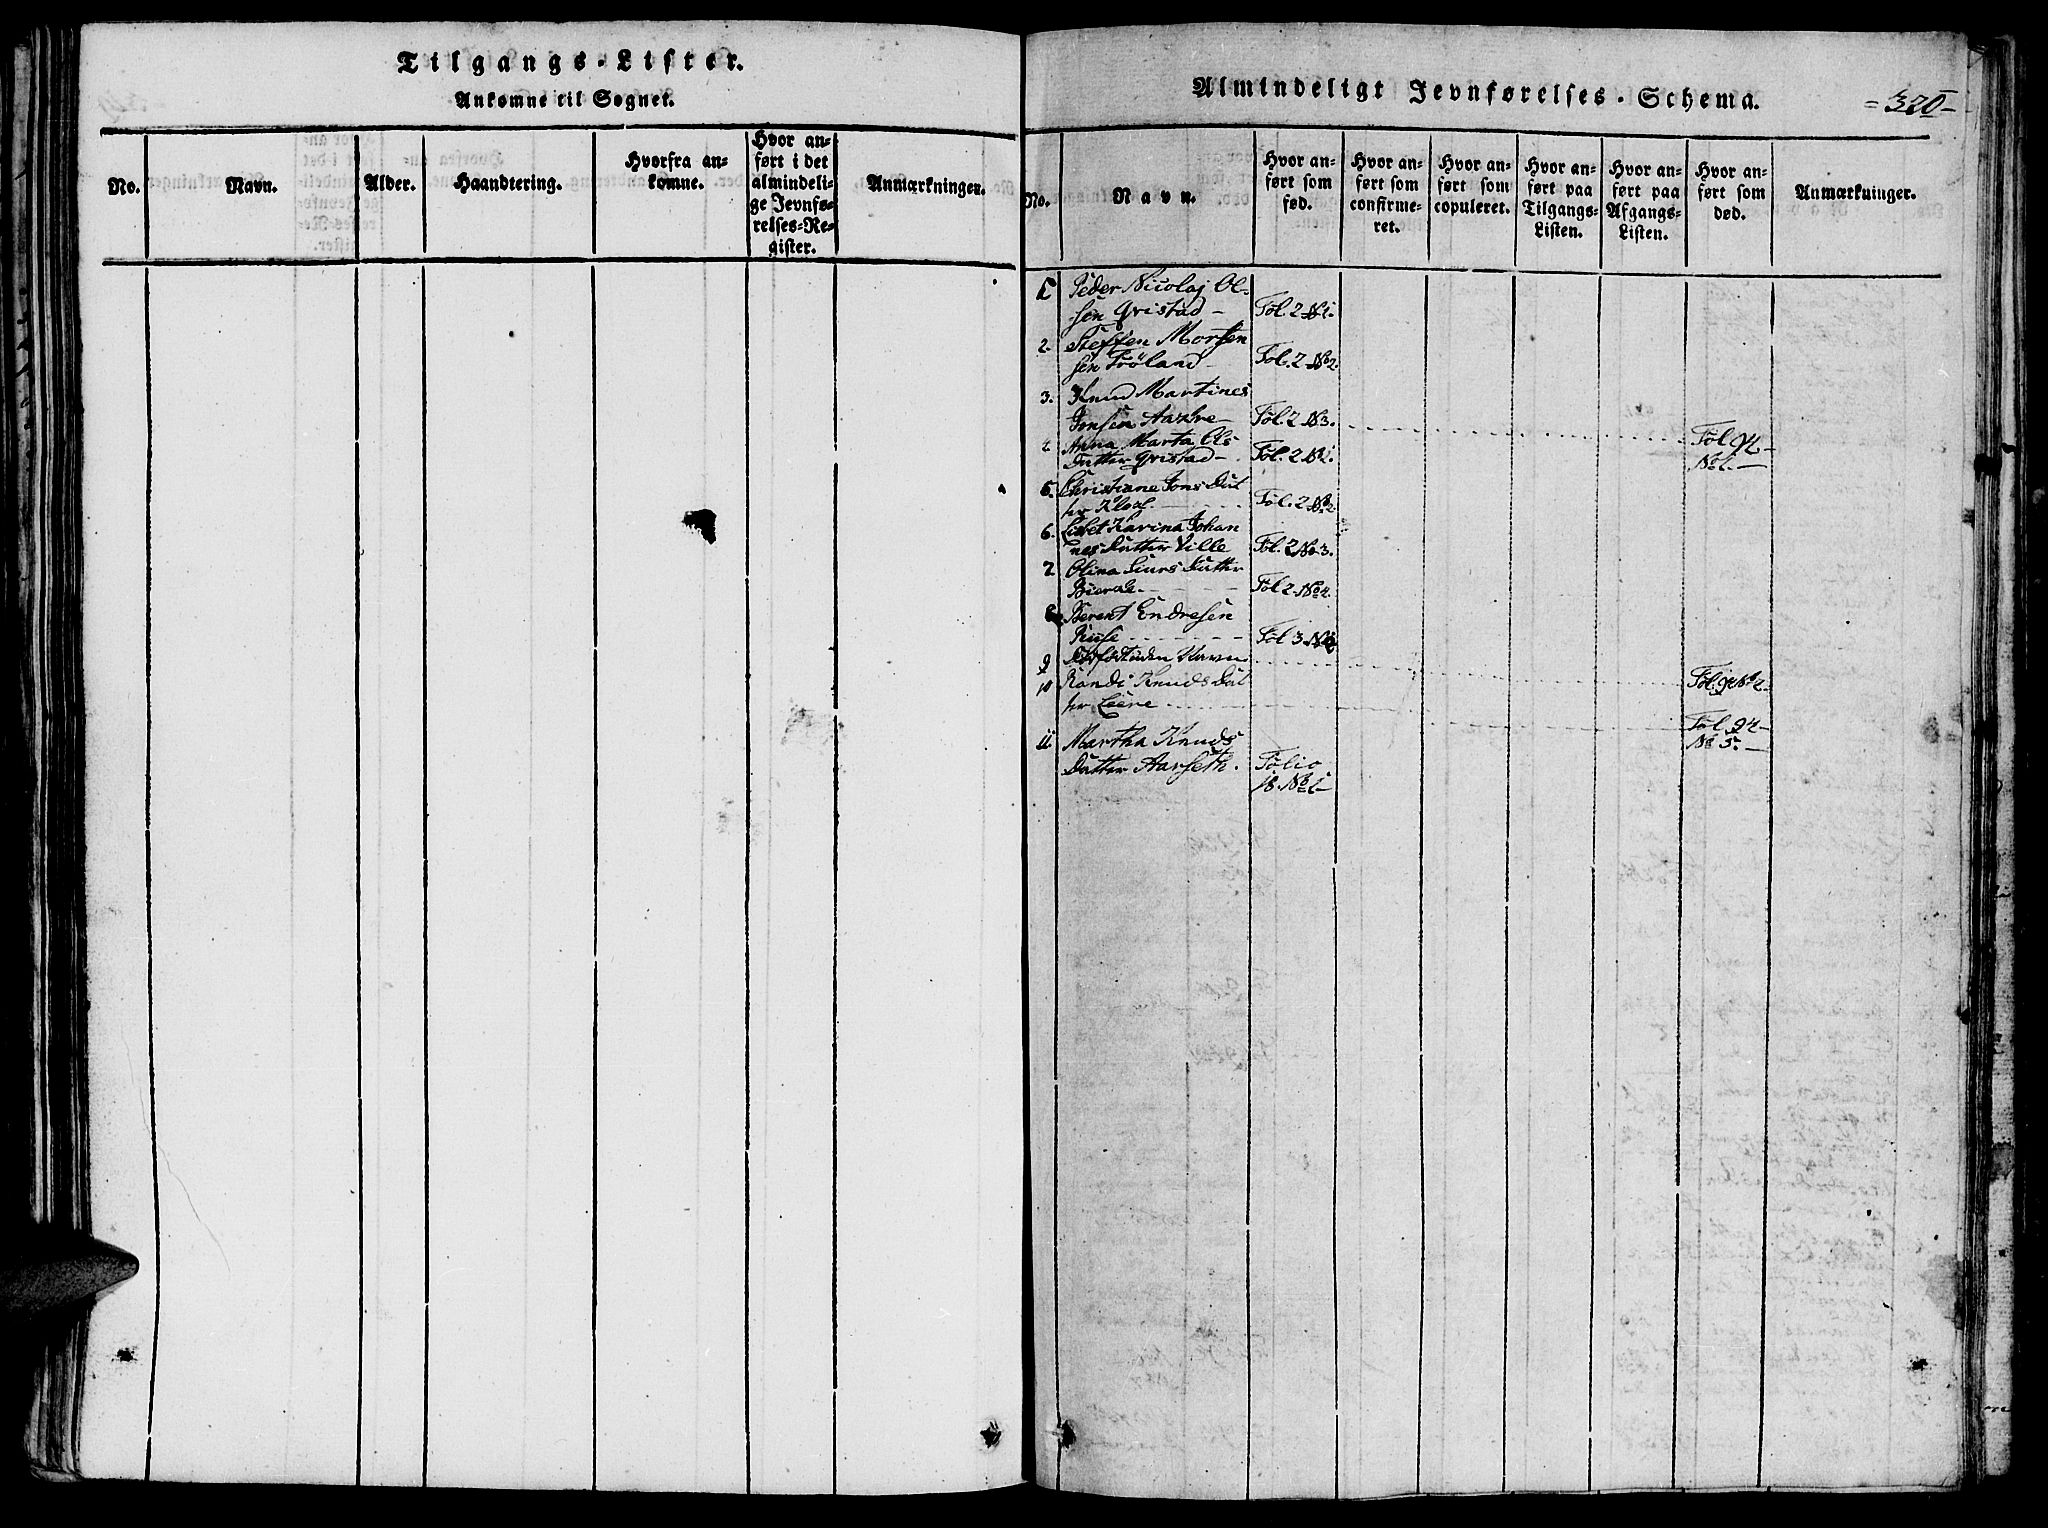 Tilgangs-Lister.
Ankomne til Sognet.
No.
Navn.
Alder.
Haandtering.
Hvorfra an-
komne.
Hvor an-
ført i det
almindeli-
ge Jevnfø-
relses-Re-
gister.
Anmærkninger.
Almindeligt Jevnførelses-Schema.
=320=
No.
Navn.
Hvor an-
ført som
fød.
Hvor an-
ført som
confirme-
ret.
Hvor an-
ført som
copuleret.
Hvor an-
ført paa
Tilgangs-
Listen.
Hvor an-
ført paa
Afgangs-
Listen.
Hvor an-
ført som
død.
Anmærkninger.
Peder Nicolaj Ol-
sen Qvistad - Fol. 2 No 1.
2. Steffen Morten
sen Fröland - Fol. 2 No 2.
3. Knud Martines
Jonsen Aakre - Fol. 2 No 3. Fol. 94-
Anna Marta Ols No
Datter Qvistad - Fol. 2 No 1.
5. Christiane Jons Dat
ter Fol. 2 No 2
6. Lisbet Karina Johan
nes Datter Ville Fol. 2 No 3.
7 Olina Siurs Datter
Fol 2 No 4.
8 Berent Endresen
Ruse Fol 3 No
9 Navn Fol. 94 No 2
10 Randi Knuds Dat
ter Leere Fol. 94-
No 5.
11. Martha Knuds
Datter Aarseth. Folio
18. No 1